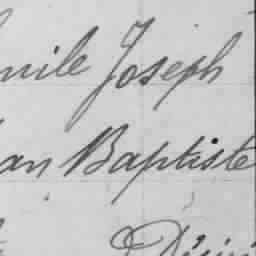 mile Joseph
an Baptiste